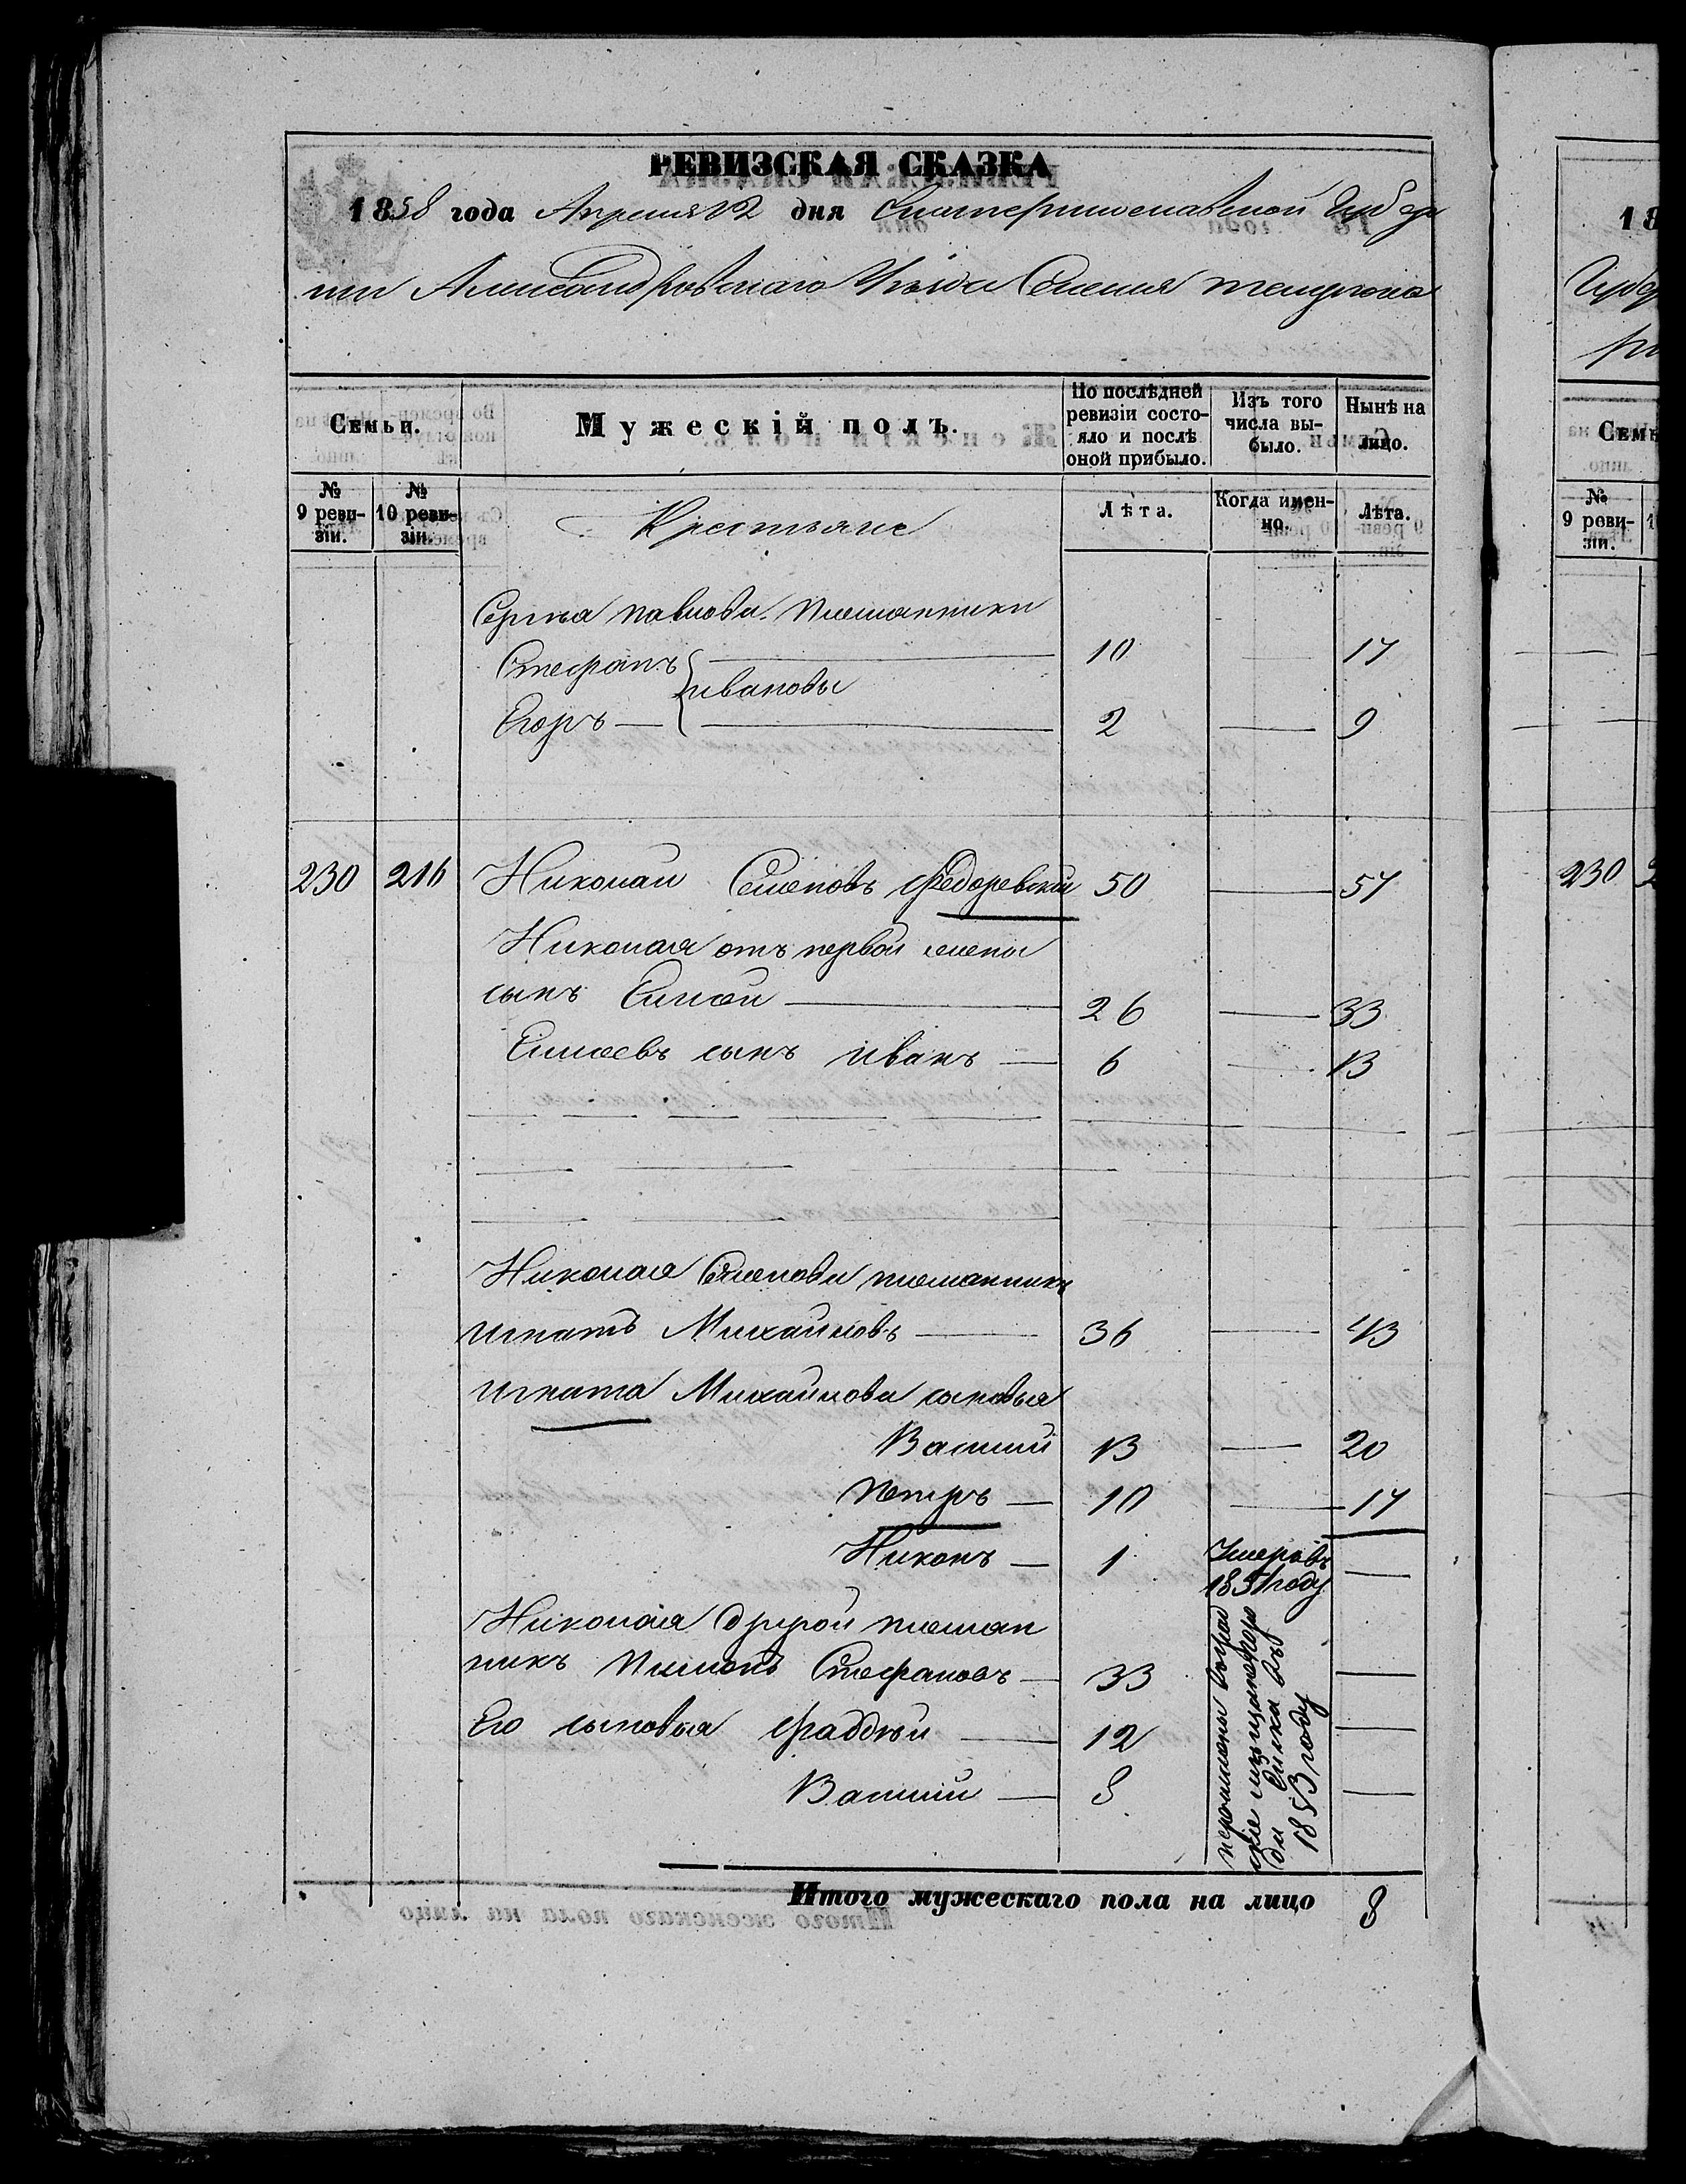 РЕВИЗСКАЯ СКАЗКА
1858 года Апреля 12 дня Екатеринославской Губер
нии Александровскаго Уѣзда Селения
Семьи.
Мужескій полъ.
По послѣдней ревизіи состояло и послѣ оной прибыло.
Изъ того числа выбыло.
Нынѣ на лицо.
№ 9 ревизіи.
№ 10 ревизіи.
Крестьяне
Лѣта.
Когда именно.
Лѣта.
Сергѣя павлова племянники
Стефанъ 10 17
ивановы
Егоръ 2 9
230 216 Николай Семеновъ Федоревский 50 57
Николая отъ первой жены
сынъ Елисей 26 33
Елисеевъ сынъ иванъ 6 13
Николая Семенова племянникъ
игнатъ Михайловъ 36 43
игната Михайлова сыновья
Василий 13 20
петръ 10 17
Никонъ 1 Умеръ въ
1851 году
Николая другой племян
никъ пимонъ Стефановъ 33
Его сыновья Фаддѣй 12
Василий 8
перечислены
въ
1853 году
Итого мужескаго пола на лицо 8
18
Губер
Семь
№ 9 ревизіи.
230